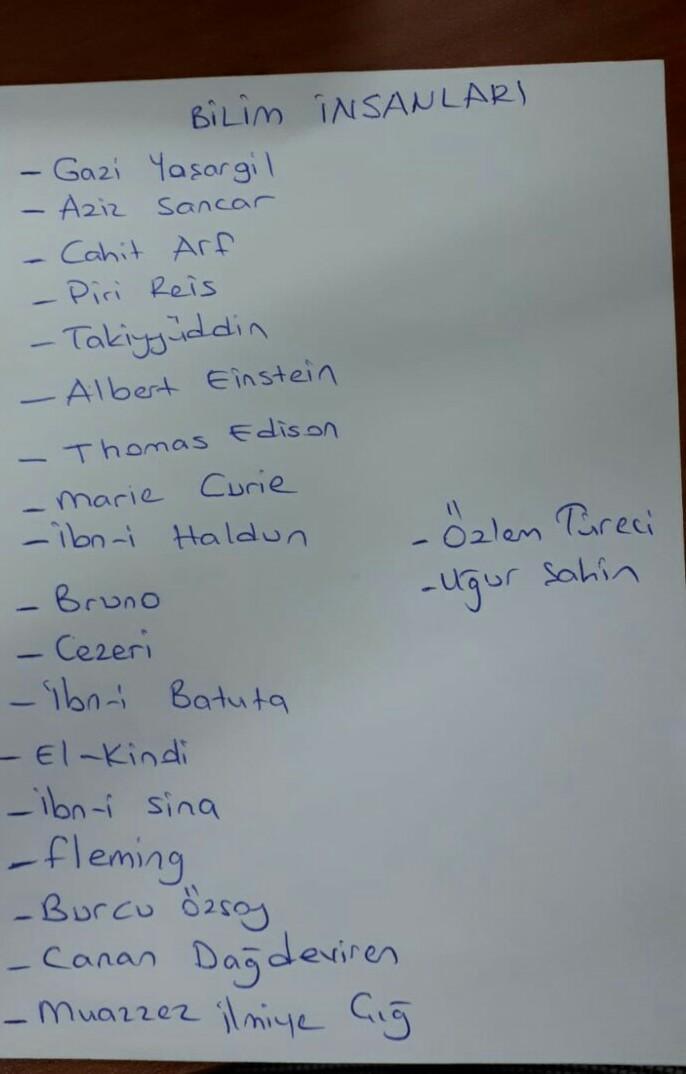 BİLİM İNSANLARI
- Gazi Yaşargil
- Aziz Sancar
- Cahit Arf
- Piri Reis
- Takiyyüddin
- Albert Einstein
- Thomas Edison
- Marie Curie
- İbn-i Haldun
- Bruno
- Cezeri
- İbn-i Batuta
- El-Kindi
- İbn-i Sina
- Fleming
- Burcu Özsoy
- Canan Dağdeviren
- Muazzez ilmiye Çığ
- Özlem Türeci
- Uğur Şahin